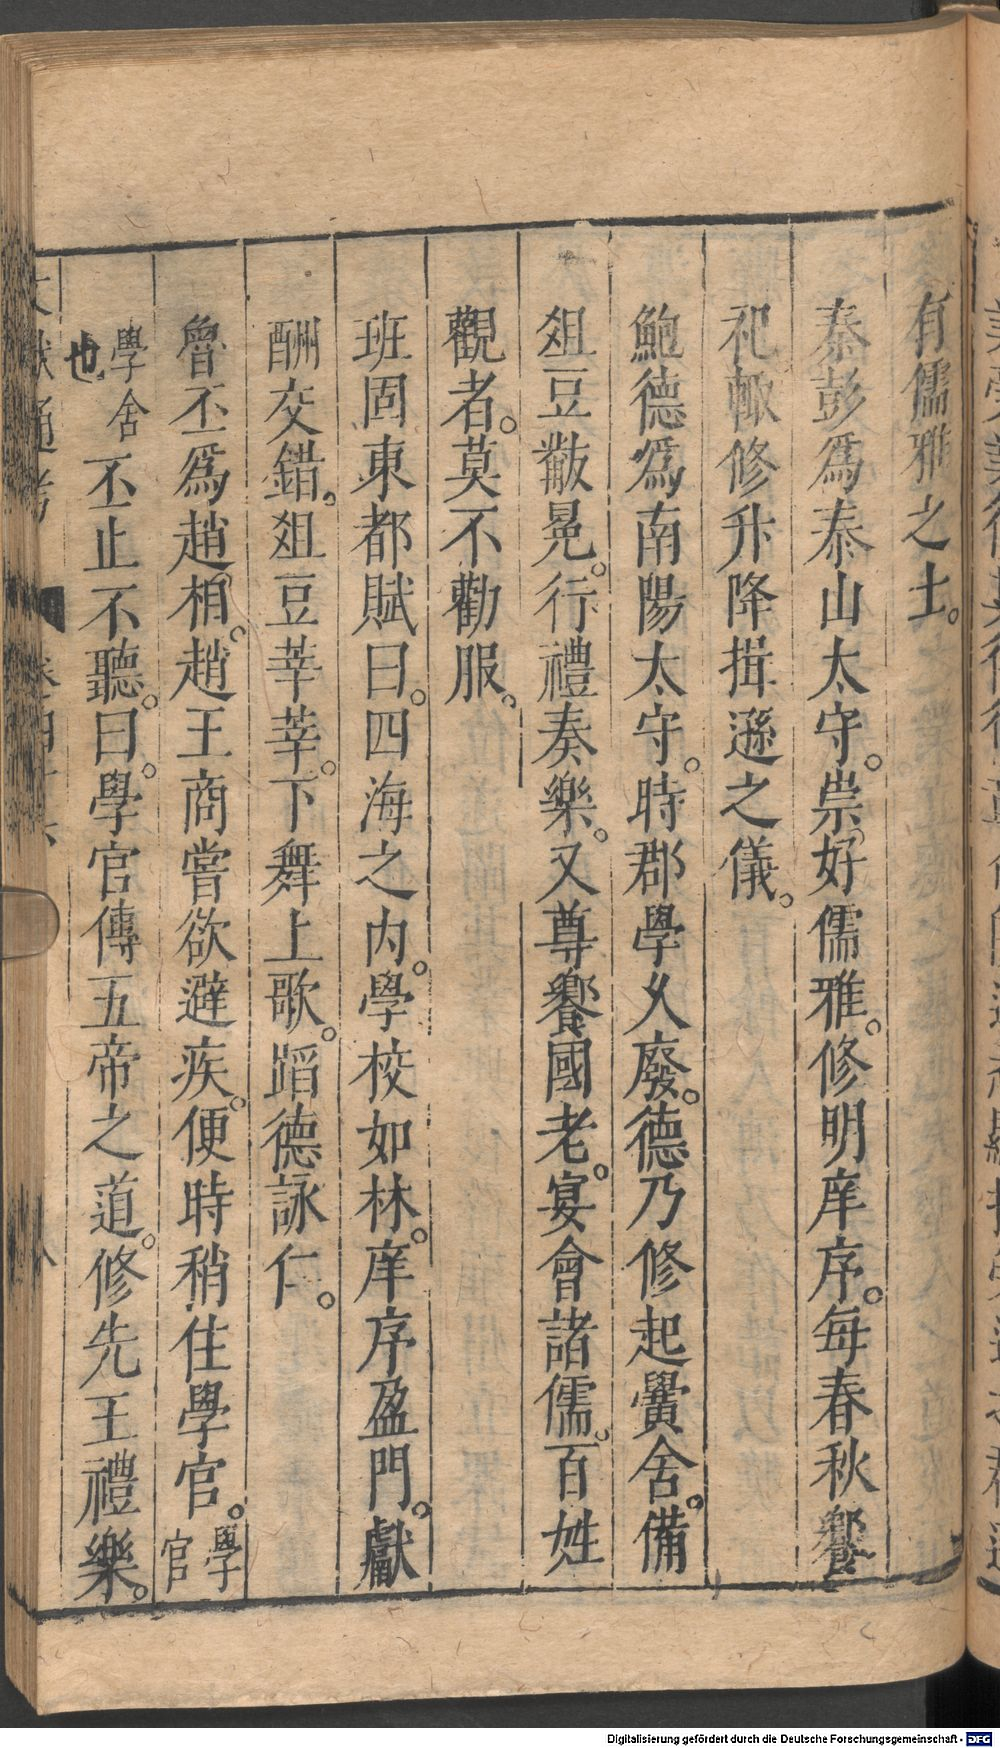 有儒雅之士。
秦彭爲泰山太守。崇好儒雅。修明庠序。每春秋饗
祀輙修升降揖遜之儀。
鮑德爲南陽太守。時郡學久廢。德乃修起黌舍。備
俎豆黻冕。行禮奏樂。又尊饗國老。宴會諸儒。百姓
觀者。莫不勸服。
班固東都賦曰。四海之内。學校如林。庠序盈門。獻
酬交錯。俎豆莘莘。下舞上歌。蹈德詠仁。
魯丕爲趙相。趙王商嘗欲避疾。便時稍住學官。學官
學舍也丕止不聽。曰。學官傳五帝之道。修先王禮樂。
文獻通考 卷四十六 八
Digitalisierung gefördert durch die Deutsche Forschungsgemeinschaft - DFG